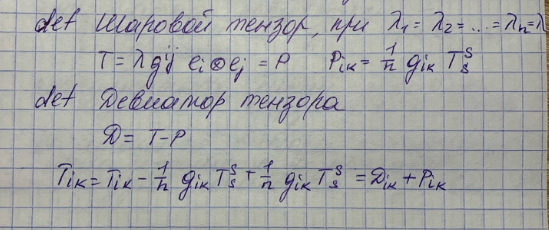 def Шаровой тензор, при λ₁ = λ₂ = ... = λₙ = λ
T = λ gij ei⊗ej = P   Pik = 1/n gik Tˢₛ
def Девиатор тензора
D = T - P
Tik = Tik - 1/n gik Tˢₛ + 1/n gik Tˢₛ = Dik + Pik